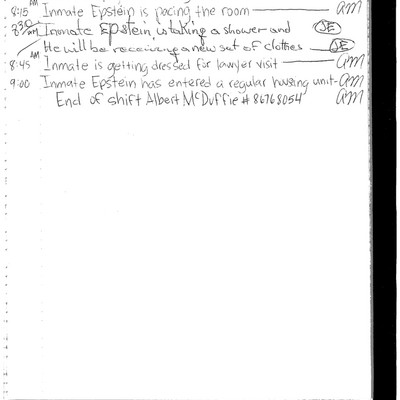 8:15 AM Inmate Epstein is pacing the room am
8:30 AM Inmate Epstein is taking a shower and JE
He will be receiving a new set of clothes JE
8:45 AM Inmate is getting dressed for lawyer visit am
9:00 Inmate Epstein has entered a regular housing unit am
End of shift Albert McDuffie # 86768054 am